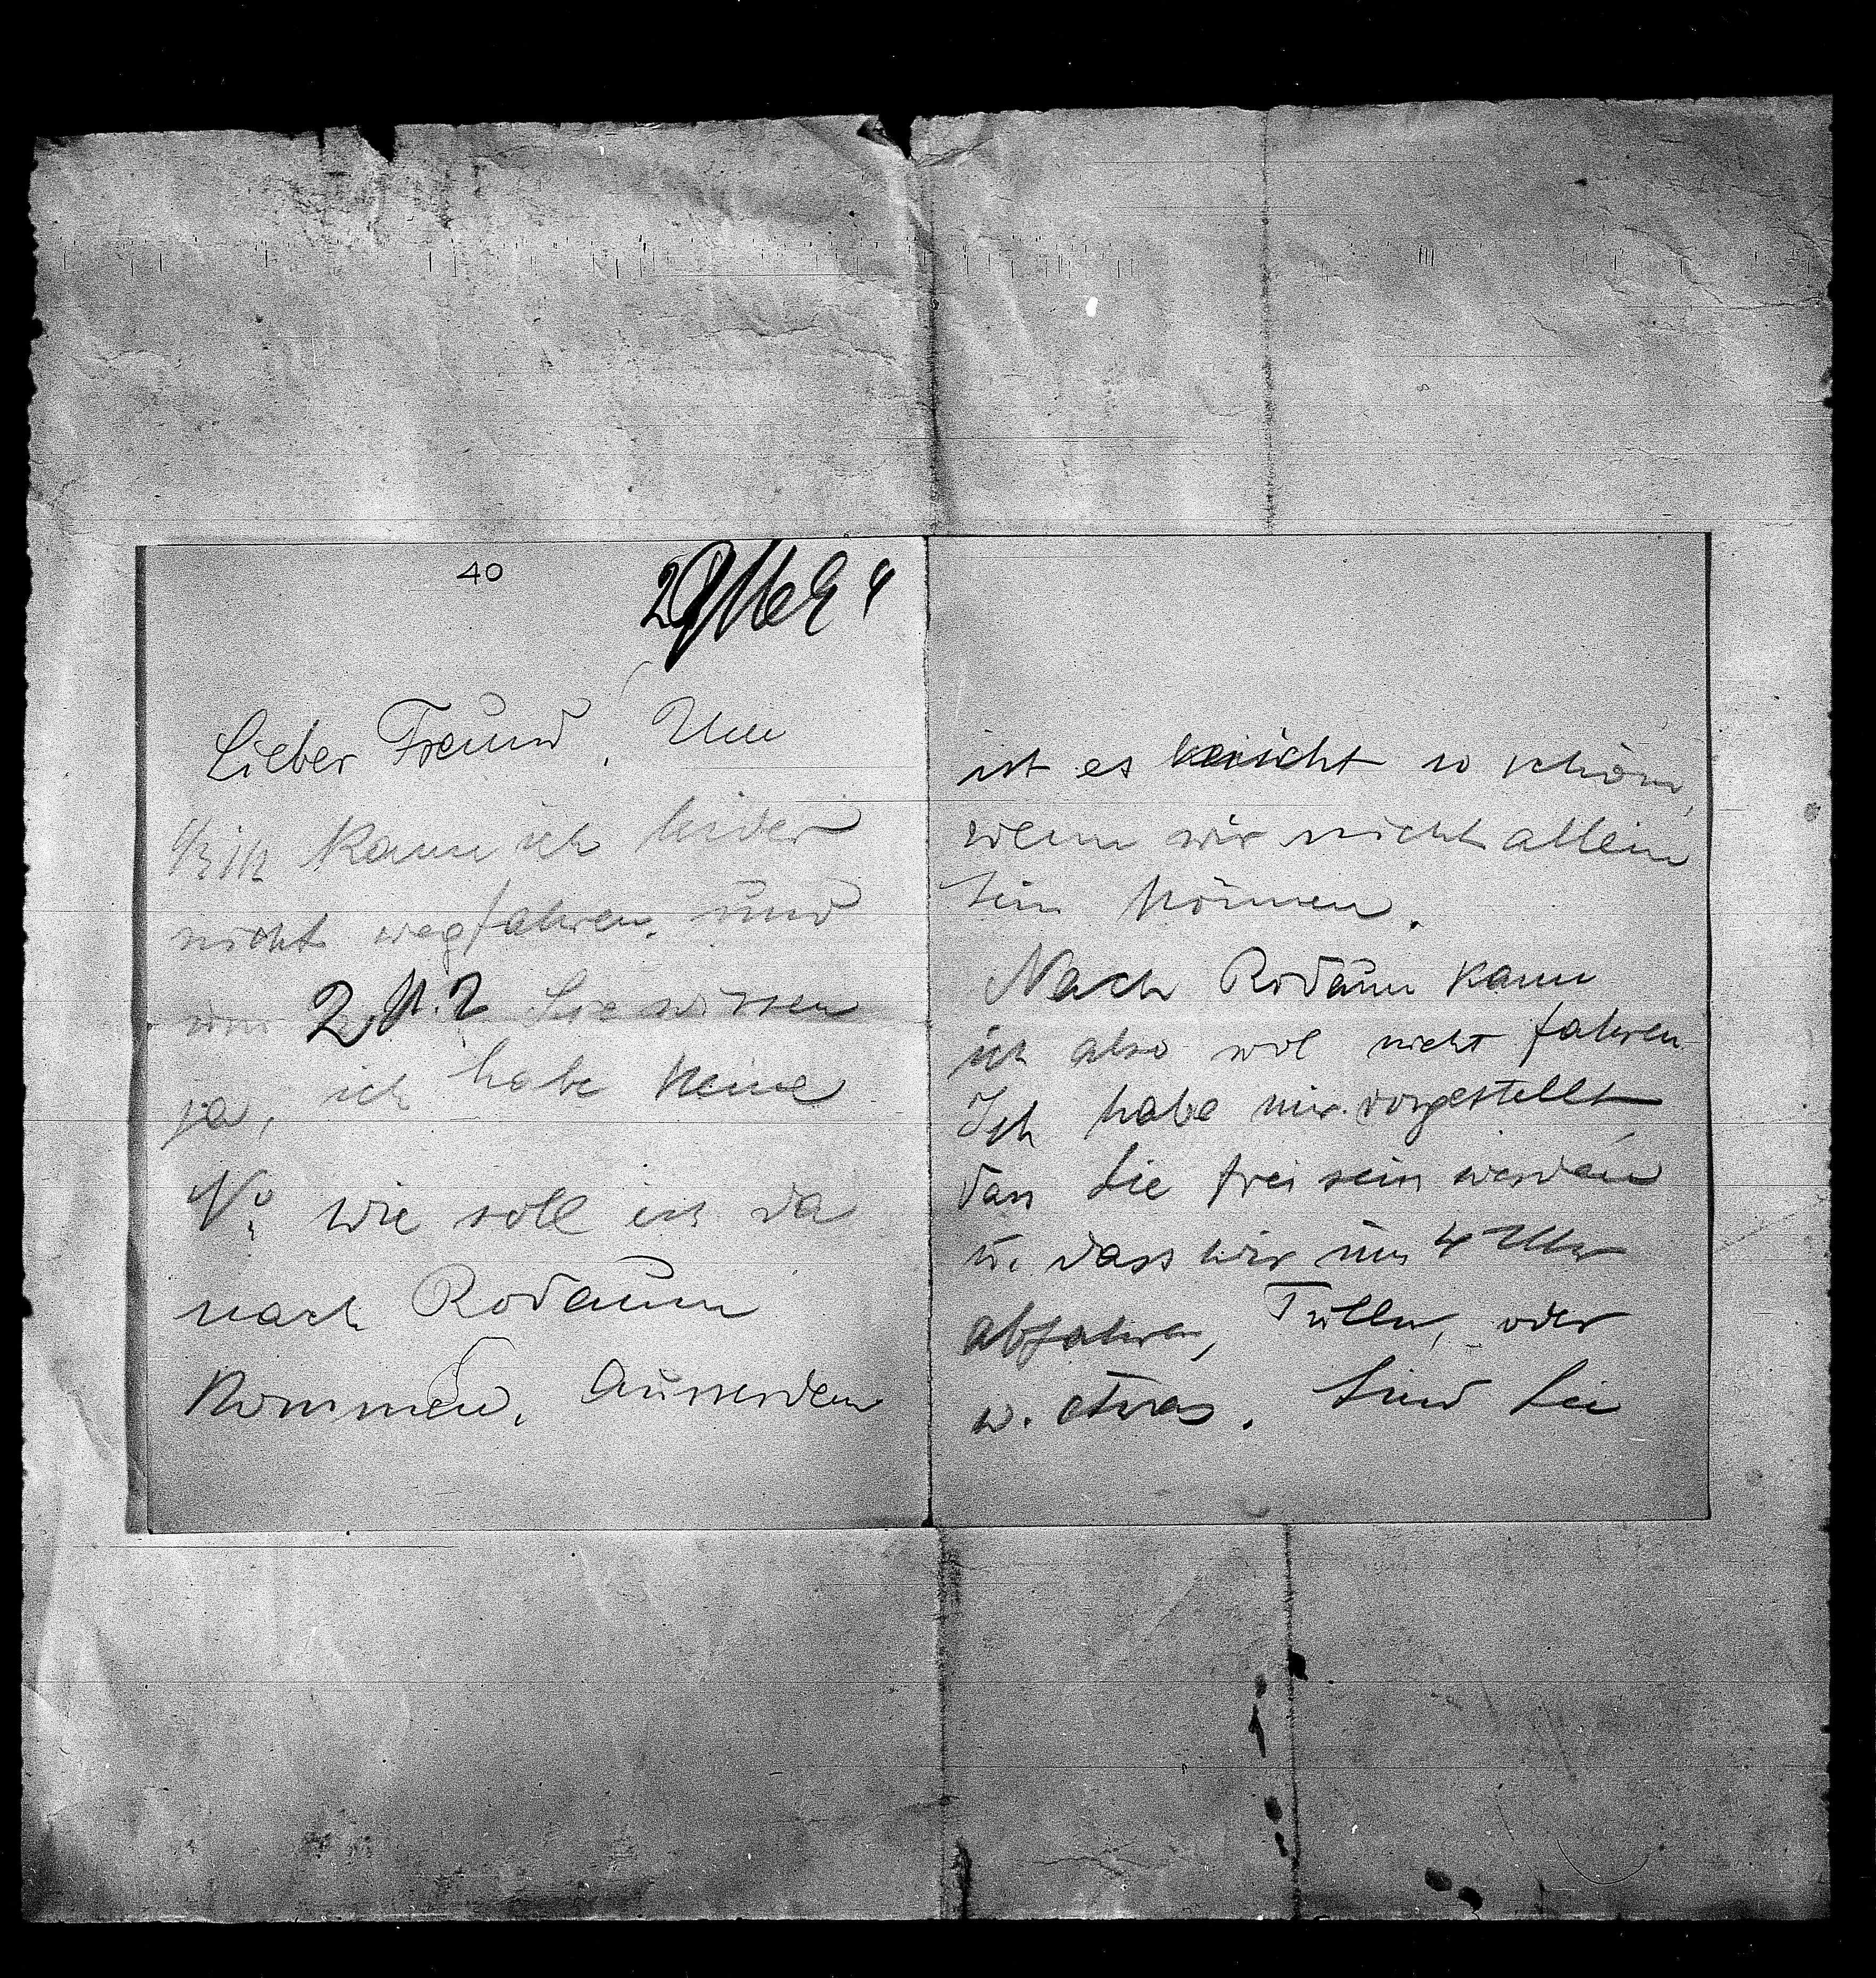 40
29/6 94
Lieber Freund, Um
1/2 12 kann ich leider
nicht wegfahren, und
um 2 U.? Sie wissen
ja, ich habe keine
No wie soll ich da
nach Rodaun
kommen. Ausserdem
ist es nicht so schön,
wenn wir nicht allein
sein können.
Nach Rodaun kann
ich also wol nicht fahren
Ich habe mir vorgestellt
dass Sie frei sein werden
u. dass wir um 4 Uhr
abfahren, Tulln, oder
so etwas. Sind Sie